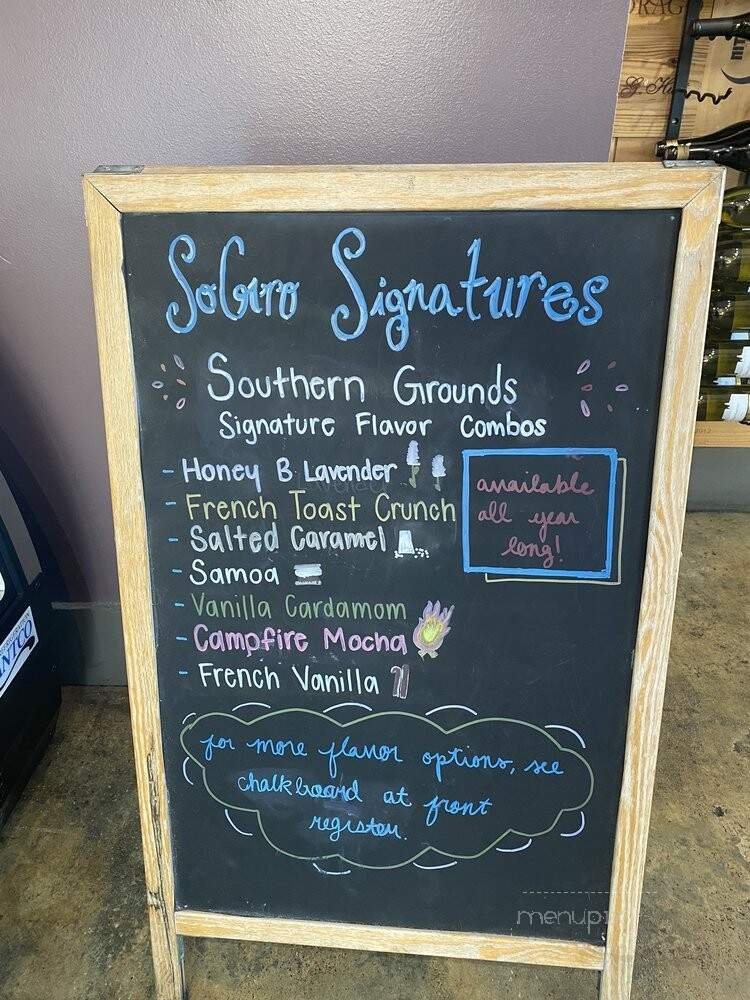 SoGro Signatures
Southern Grounds
Signature Flavor Combos
- Honey B Lavender
- French Toast Crunch
- Salted Caramel
- Samoa
- Vanilla Cardamom
- Campfire Mocha
- French Vanilla
available
all year
long!
for more flavor options, see
chalkboard at front
register.
menupix